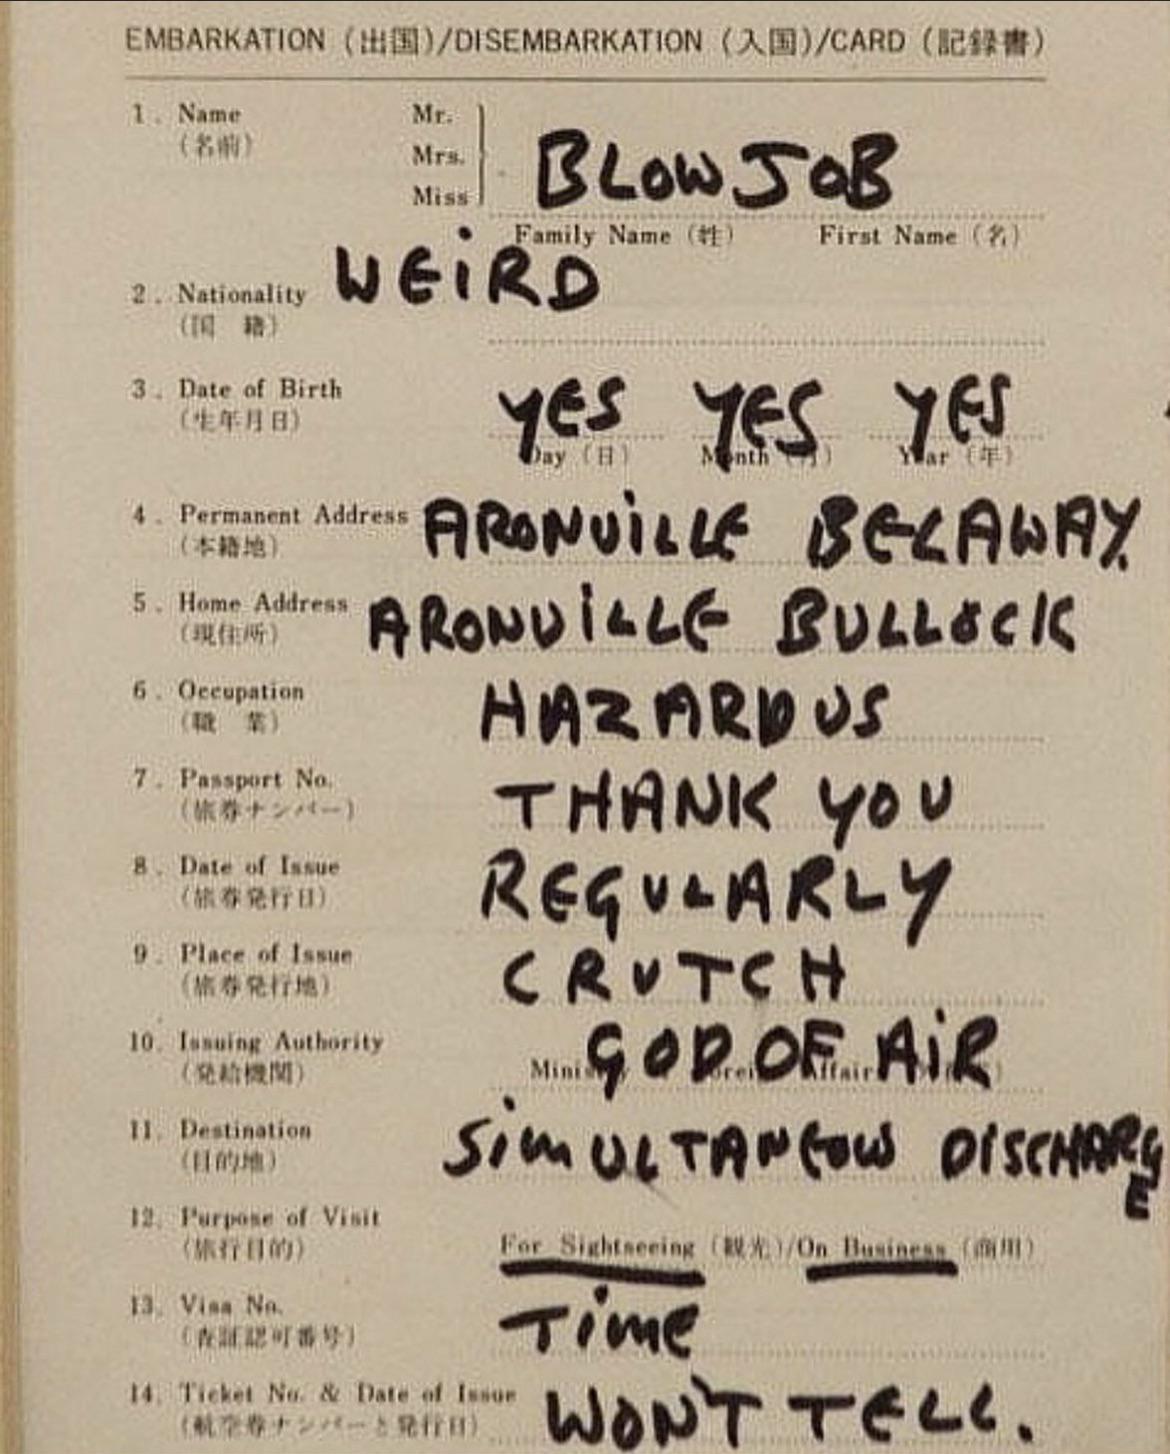 EMBARKATION (出国)/DISEMBARKATION (入国)/CARD (記録書)
1. Name Mr.
(名前) Mrs. BLOW JOB
Miss
Family Name (姓) First Name (名)
2. Nationality WEiRD
(国 籍)
3. Date of Birth YES YES YES
(生年月日) Day (日) Month (月) Year (年)
4. Permanent Address ARONViLLE BELAWAY.
(本籍地)
5. Home Address ARONViLLE BULLOCK
(現住所)
6. Occupation HAZARDUS
(職 業)
7. Passport No. THANK YOU
(旅券ナンバー)
8. Date of Issue REGULARLY
(旅券発行日)
9. Place of Issue CRUTCH
(旅券発行地)
10. Issuing Authority GOD OF AiR
(発給機関) Ministry Foreign Affairs
11. Destination SiMULTANEOUS DISCHARGE
(目的地)
12. Purpose of Visit
(旅行目的) For Sightseeing (観光)/On Business (商用)
13. Visa No. TiME
(査証認可番号)
14. Ticket No. & Date of Issue WON'T TELL.
(航空券ナンバーと発行日)